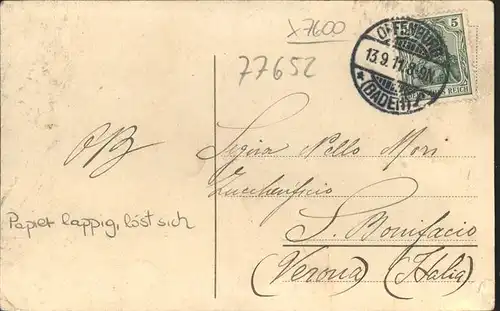 x7600
77652
OFFENBURG
13.9.11.8-9N.
* (BADEN) 2 *
5
REICH
Papier lappig, löst sich
Sigira Nello Mori
Zuccherificio
S. Bonifacio
(Verona) (Italia)